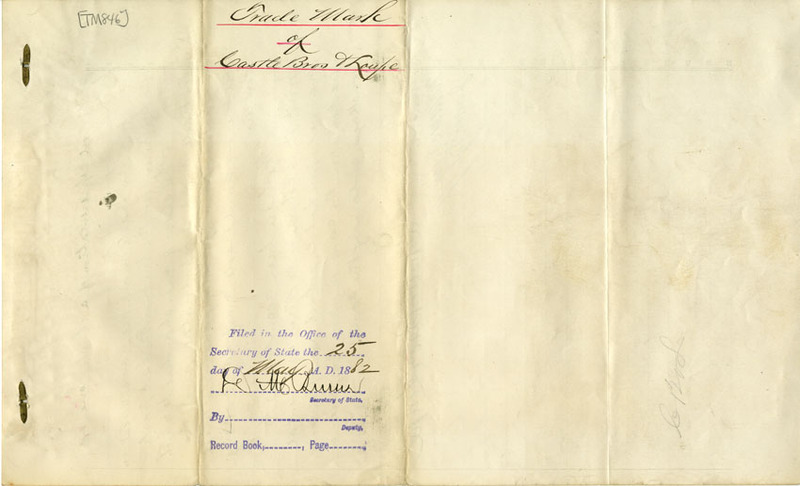 [TM846]
Trade Mark
of
Castle Bros & Loupe
Filed in the Office of the
Secretary of State the 25
day of May A. D. 1882
Secretary of State.
By
Deputy.
Record Book, , Page ;